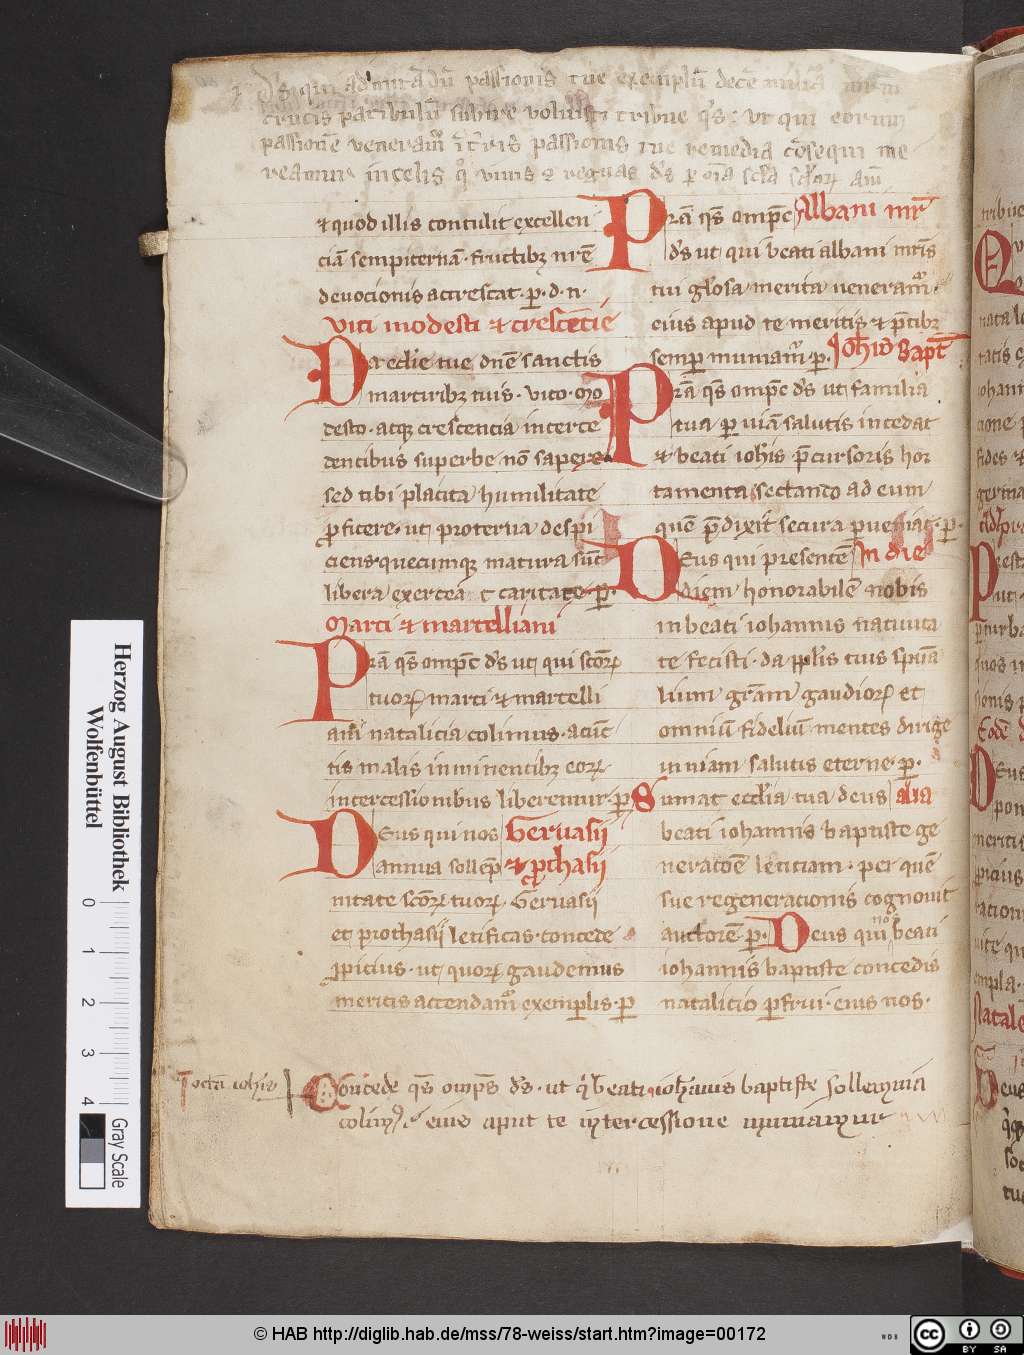 Ds qui ad imitadū passionis tue exemplū
crucis patibulū subire voluisti tribue qs ut qui eorum
passionē veneram᷒ passionis tue remedia cōsequi me
reamur in celis qͥ vivis ⁊ regnas ds p oīa scla sclorꝝ am̄
⁊ quod illis contulit excellen
ciā sempiternā · fructibꝫ nrē
devocionis accrescat · ꝑ · d · n ·
Viti modesti ⁊ crescētie
Da eclie tue dnē sanctis
martiribꝫ tuis · vito · mo
desto · atqꝫ crescencia interce
dentibus superbe nō sapere
sed tibi placita humilitate
ꝓficere · ut proterva despi
ciens quecumqꝫ matura sūt
libera exerceat caritate · ꝑ ·
Marci ⁊ martelliani
Prā qs ompc ds ut qui scorꝝ
tuorꝝ marci ⁊ martelli
ani natalicia colimus · acūc
tis malis inminentibꝫ eorꝝ
intercessionibus liberemur · ꝑ
Deus qui nos Gervasii
annua sollēp ⁊ ꝓthasii
nitate scorꝝ tuorꝝ · Gervasii
et prothasii letificas · concede
ꝓpicius · ut quorꝝ gaudemus
meritis accendam᷒ exemplis · ꝑ
Prā qs ompc Albani mr̄
ds ut qui beati albani mr̄is
tui glosa merita veneram᷒ ·
eius apud te meritis ⁊ p̄cibꝫ
semꝑ muniam᷒ · ꝑ · Iohis bapt̄
Prā qs ompc ds ut familia
tua ꝑ viā salutis incedat
⁊ beati iohis p̄cursoris hor
tamenta sectando ad eum
quē p̄dixit secura pueniat · ꝑ ·
Deus qui presentē In die
diem honorabilē nobis
in beati iohannis nativita
te fecisti · da pplis tuis spūa
lium gr̄am gaudiorꝝ et
omniū fideliū mentes dirige
in viam salutis eterne · ꝑ ·
Sumat ecclia tua deus alia
beati iohannis baptiste ge
neracōē leticiam · per quē
sue regenerationis cognovit
auctorē · ꝑ · Deus qui nos beati
iohannis baptiste concedis
natalicio ꝑfrui · eius nos ·
octā iohis Concede qs omps ds · ut qi beati iohānis baptiste sollempnia
colim᷒ eius aput te intercessione muniamur
Herzog August Bibliothek
Wolfenbüttel
0 1 2 3 4
Gray Scale
© HAB http://diglib.hab.de/mss/78-weiss/start.htm?image=00172
WDB
cc BY SA